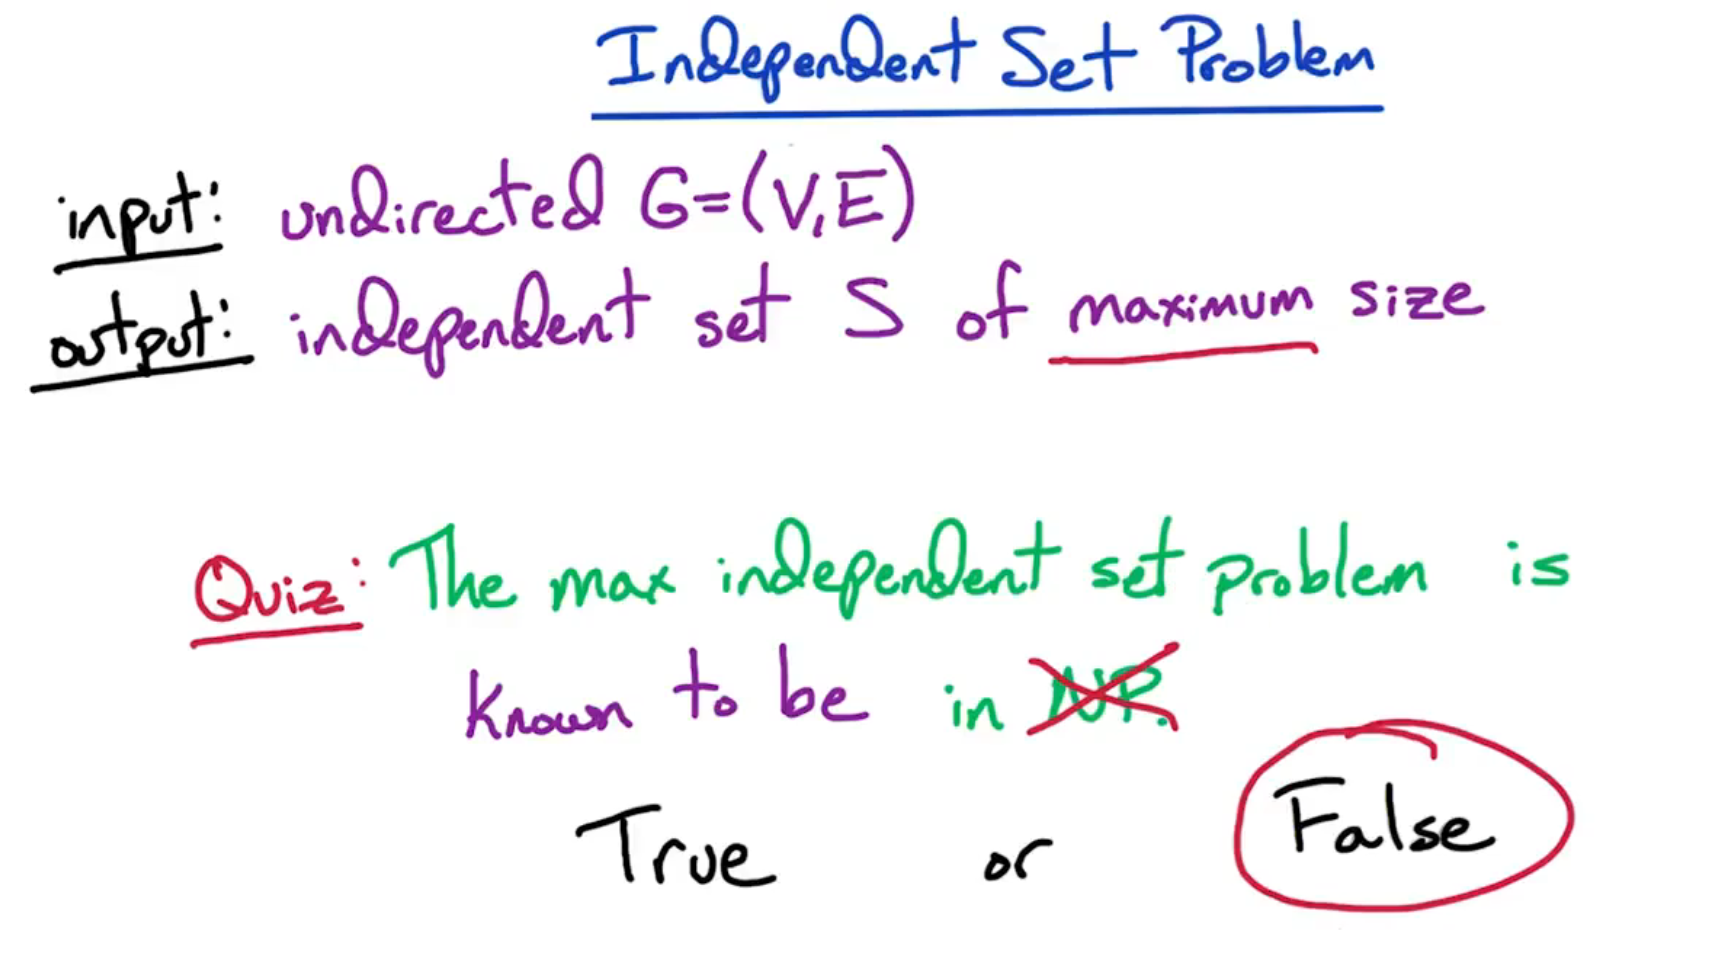 Independent Set Problem
input: undirected G=(V,E)
output: independent set S of maximum size
Quiz: The max independent set problem is
known to be in NP.
True or False